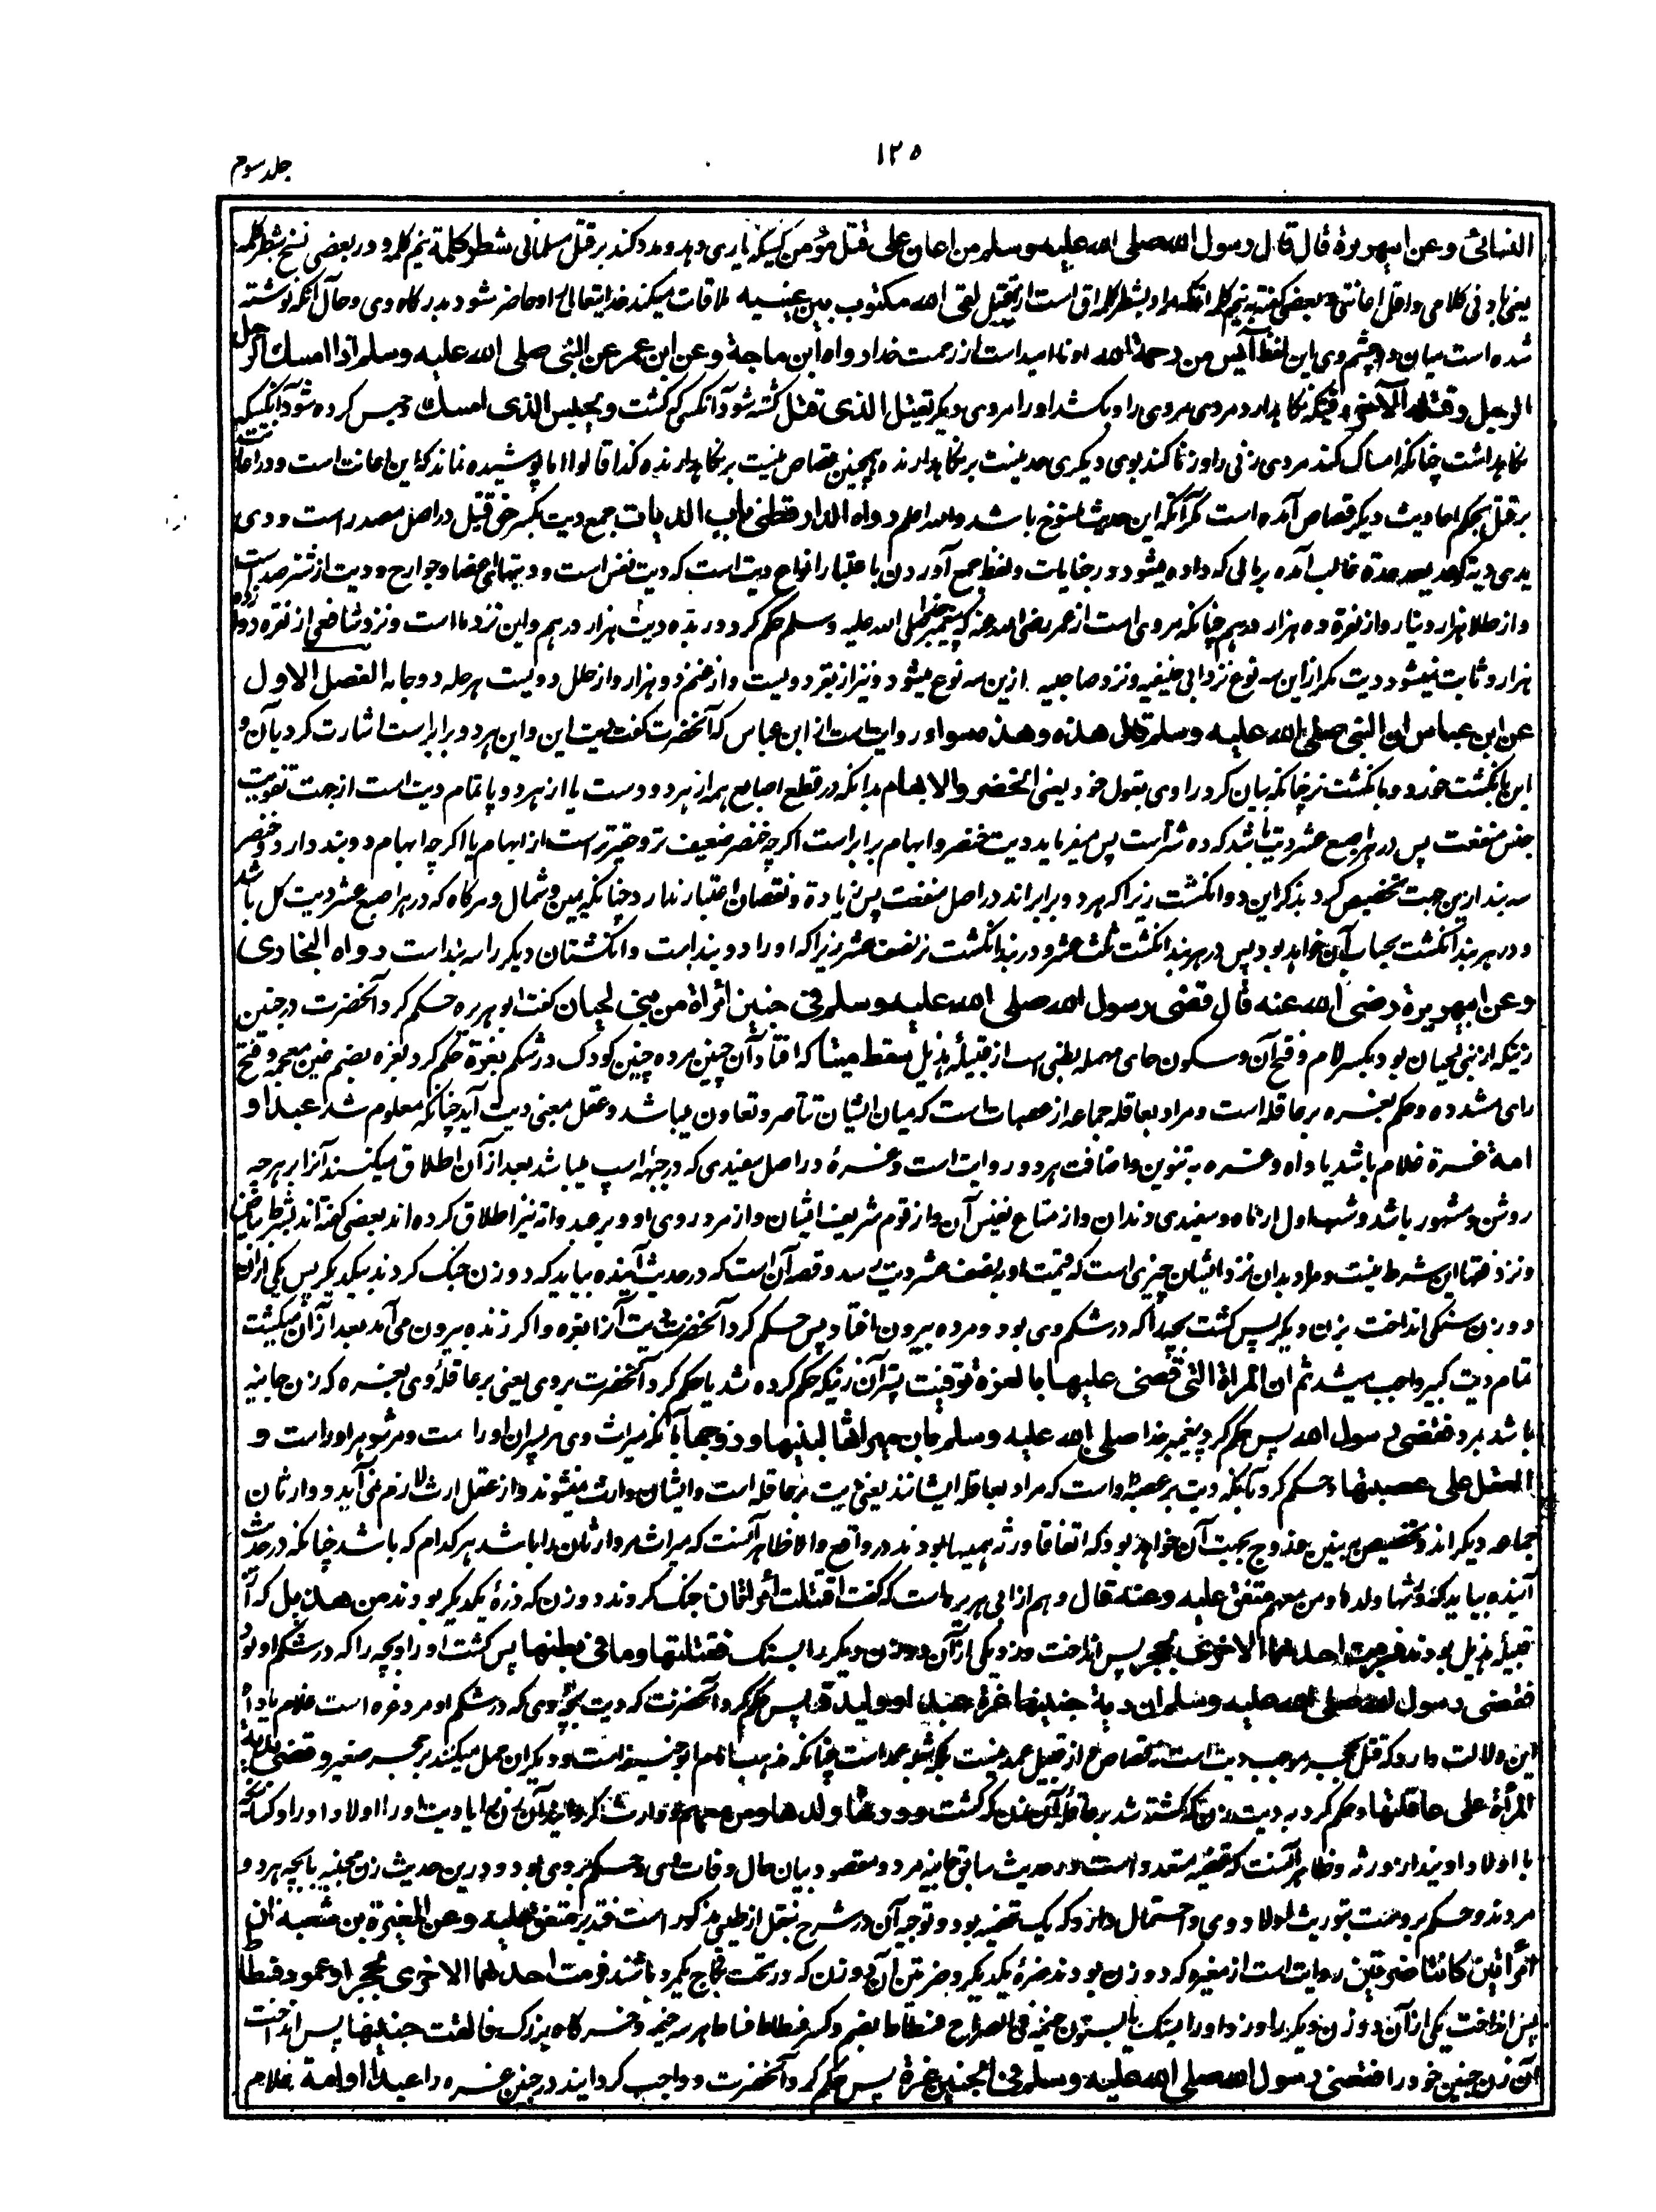 ۱۲۵
جلد سوم
النسائی وعن ابیهریرة قال قال رسول الله صلی الله علیه وسلم من اعان علی قتل مؤمن کسیکه یاری دهد و مدد کند بر قتل مسلمانی شطر کلمة نیم کلمه و در بعضی نسخ بشطر کلمه
یعنی بادنی کلامی و اقل اعانتی و بعضی گفته نیم کلمه آنکه مراد بشطر کلمه اق است از اقتل لقی الله مکتوب بین عینیه ملاقات میکند خدایتعالی را و حاضر شود بدرگاه وی و حال آنکه نوشته
شده است میان دو چشم وی این لفظ آیس من رحمة الله او ناامید است از رحمت خدا رواه ابن ماجة وعن ابن عمر عن النبی صلی الله علیه وسلم اذا امسک الرجل
الرجل وقتله الآخر وقتیکه نگاهدارد مردی مردی را و بکشد او را مردی دیگر یقتل الذی قتل کشته شود آنکس که کشت ویحبس الذی امسک و حبس کرده شود آنکسیکه
نگاهداشت چنانکه امساک کند مردی زنی را و زنا کند بوی دیگری حد نیست بر نگاهدارنده همچنین قصاص نیست بر نگاهدارنده کذا قالوا اما پوشیده نماند که این اعانت است و در اعانت
بر قتل بحکم احادیث دیگر قصاص آمده است مگر آنکه این حدیث منسوخ باشد والله اعلم رواه الدارقطنی باب الدیات جمع دیت بکسر حق قتیل در اصل مصدر است ودی
یدی دیة کوعد یعد عدة غالب آمده بر مالی که داده میشود در جنایات و لفظ جمع آوردن باعتبار انواع دیت است که دیت نفس است و دیتهای اعضا و جوارح و دیت از شتر صد است
و از طلا هزار دینار و از نقره ده هزار درهم چنانکه مروی است از عمر رضی الله عنه که پیغمبر خدا صلی الله علیه وسلم حکم کرد در دیت ده هزار درهم و این نزد ما است و نزد شافعی از نقره دوازده
هزار و ثابت نمیشود دیت مگر از این سه نوع نزد ابی حنیفه و نزد صاحبیه ازین سه نوع میشود و نیز از بقر دویست و از غنم دو هزار و از حلل دویست هر حله دو جامه الفصل الاول
عن ابن عباس ان النبی صلی الله علیه وسلم قال هذه وهذه سواء روایت است از ابن عباس که آنحضرت گفت دیت این و این هر دو برابر است اشارت کرد بآن و
این بانگشت خورد و بانگشت نر چنانکه بیان کرد راوی بقول خود یعنی الخنصر والابهام بدانکه در قطع اصابع همه از هر دو دست یا از هر دو پا تمام دیت است از جهت تفویت
جنس منفعت پس در هر اصبع عشر دیت باشد که ده شتر است پس میفرماید دیت خنصر و ابهام برابر است اگرچه خنصر ضعیف تر و حقیرتر است از ابهام یا اگرچه ابهام دو بند دارد و خنصر
سه بند ازین جهت تخصیص کرد بذکر این دو انگشت زیرا که هر دو برابر اند در اصل منفعت پس زیادة و نقصان اعتبار ندارد چنانکه یمین و شمال و هرگاه که در هر اصبع عشر دیت کل باشد
و در هر بند انگشت بحساب آن خواهد بود پس در هر بند انگشت ثلث عشر و در بند انگشت نر نصف عشر زیرا که او را دو بند است و انگشتان دیگر را سه بند است رواه البخاری
وعن ابیهریرة رضی الله عنه قال قضی رسول الله صلی الله علیه وسلم فی جنین امرأة من بنی لحیان گفت ابو هریره حکم کرد آنحضرت در جنین
زنیکه از بنی لحیان بود بکسر لام و فتح آن و سکون حای مهمله بطنی است از قبیلهٔ هذیل سقط میتا که افتاد آن جنین مرده جنین کودک در شکم بغرة حکم کرد بغره بضم غین معجمه و فتح
رای مشدده و حکم بغره بر عاقله است و مراد بعاقله جماعه از عصبات است که میان ایشان تناصر و تعاون میباشد و عقل بمعنی دیت آید چنانکه معلوم شد عبد او
امة غرة غلام باشد یا داه و غره به تنوین و اضافت هر دو روایت است و غرهٔ در اصل سفیدی که در جبههٔ اسپ میباشد بعد از آن اطلاق میکنند آنرا بر هر چه
روشن و مشهور باشد و شبهای اول از ماه و سفیدی دندان و از متاع نفیس آن و از قوم شریف ایشان و از مرد روی او و بر عبد و امة نیز اطلاق کرده اند بعضی گفته اند بشرط بیاض
و نزد فقها این شرط نیست و مراد بدان نزد ایشان چیزی است که قیمت او به نصف عشر دیت رسد و قصه آن است که در حدیث آینده بیاید که دو زن جنگ کردند بیکدیگر پس یکی از ان
دو زن سنگی انداخت بزن دیگر پس کشت بچه را که در شکم وی بود و مرده بیرون افتاد پس حکم کرد آنحضرت دیت آنرا بغره و اگر زنده بیرون می آمد بعد از آن میکشت
تمام دیت کبیر واجب میشد ثم ان المرأة التی قضی علیها بالغرة توفیت پستر آن زنیکه حکم کرده شد یا حکم کرد آنحضرت بروی یعنی بر عاقلهٔ وی بغره که زن جانیه
باشد مرد فقضی رسول الله پس حکم کرد پیغمبر خدا صلی الله علیه وسلم بان میراثها لبنیها وزوجها بآنکه میراث وی مر پسران او را ست و مر شوهر او راست و
العقل علی عصبتها و حکم کرد بآنکه دیت بر عصبهٔ او است که مراد بعاقله ایشانند یعنی دیت بر عاقله است و ایشان وارث نمیشوند و از عقل ارث لازم نمی آید و وارثان
جماعه دیگر اند و تخصیص به بنین و زوج بجهت آن خواهد بود که اتفاقا ورثه همینها بودند در واقع والا ظاهر آنست که میراث مر وارثان را باشد هر کدام که باشد چنانکه در حدیث
آینده بیاید که ورثها ولدها ومن معهم متفق علیه وعنه قال و هم از ابی هریره است که گفت اقتتلت امرأتان جنگ کردند دو زن که ضرهٔ یکدیگر بودند من هذیل که از
قبیلهٔ هذیل بودند فرمت احدهما الاخری بحجر پس انداخت و زد یکی از آن دو زن دیگر را بسنگ فقتلتها وما فی بطنها پس کشت او را و بچه را که در شکم او بود
فقضی رسول الله صلی الله علیه وسلم ان دیة جنینها غرة عبد او ولیدة پس حکم کرد آنحضرت که دیت بچهٔ وی که در شکم او مرد غره است غلام یا داه
این دلالت دارد که قتل بحجر موجب دیت است نه قصاص و از قبیل عمد نیست بلکه شبه عمد است چنانکه مذهب امام ابو حنیفه است و دیگران حمل میکنند بر حجر صغیر وقضی بدیة
المرأة علی عاقلتها و حکم کرد به دیت زن که کشته شد بر عاقلهٔ آن زن که کشت وورثها ولدها ومن معهم و وارث گردانید آن زن را یا دیت او را اولاد او را و کسانیکه
با اولاد اویند از ورثه و ظاهر آنست که قضیه متعدد است و در حدیث سابق جانیه مرد و مقصود بیان حال وفات وی و حکم بروی بود و درین حدیث زن مجنیه با بچه هر دو
مردند و حکم برو هست بتوریث اولاد وی و احتمال دارد که یک قضیه بود و توجیه آن در شرح بنقل از طیبی مذکور است فتدبر متفق علیه وعن المغیرة بن شعبة ان
امرأتین کانتا ضرتین روایت است از مغیره که دو زن بودند ضرهٔ یکدیگر و ضرتین آن دو زن که در تحت نکاح یکمرد باشند فرمت احدهما الاخری بحجر او عمود فسطاط
پس انداخت یکی از آن دو زن دیگر را و زد او را بسنگ یا بستون خیمه فی الصراح فسطاط بضم و کسر فسطاط فساط هر سه خیمه و خرگاه بزرگ فالقت جنینها پس انداخت
آن زن جنین خود را فقضی رسول الله صلی الله علیه وسلم فی الجنین غرة پس حکم کرد آنحضرت و واجب گردانید در جنین غره را عبدا او امة غلام